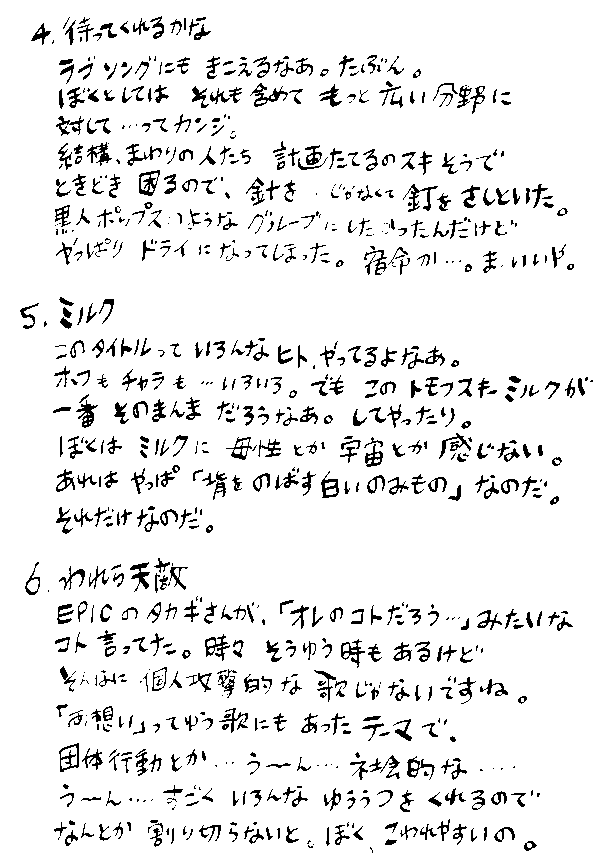 4. 待ってくれるかな
ラヴソングにも きこえるなあ。たぶん。
ぼくとしては それも含めて もっと広い分野に
対して…ってカンジ。
結構、まわりの人たち 計画たてるのスキそうで
ときどき 困るので、針を…じゃなくて 釘をさしといた。
黒人ポップスのような グルーブにしたかったんだけど
やっぱり ドライになってしまった。宿命か…。ま、いいや。
5. ミルク
このタイトルって いろんなヒト、やってるよなあ。
ホフもチャラも…いろいろ。でも このトモフスキーミルクが
一番 そのまんま だろうなあ。してやったり。
ぼくは ミルクに 母性とか宇宙とか 感じない。
あれは やっぱ「背をのばす白いのみもの」なのだ。
それだけなのだ。
6. われら天敵
EPICのタカギさんが、「オレのコトだろう…」みたいな
コト言ってた。時々 そうゆう時もあるけど
そんなに 個人攻撃的な 歌じゃないですね。
「片想い」ってゆう歌にも あったテーマで、
団体行動とか… う〜ん… 社会的な……
う〜ん… すごく いろんな ゆううつを くれるので
なんとか 割り切らないと。ぼく、こわれやすいの。